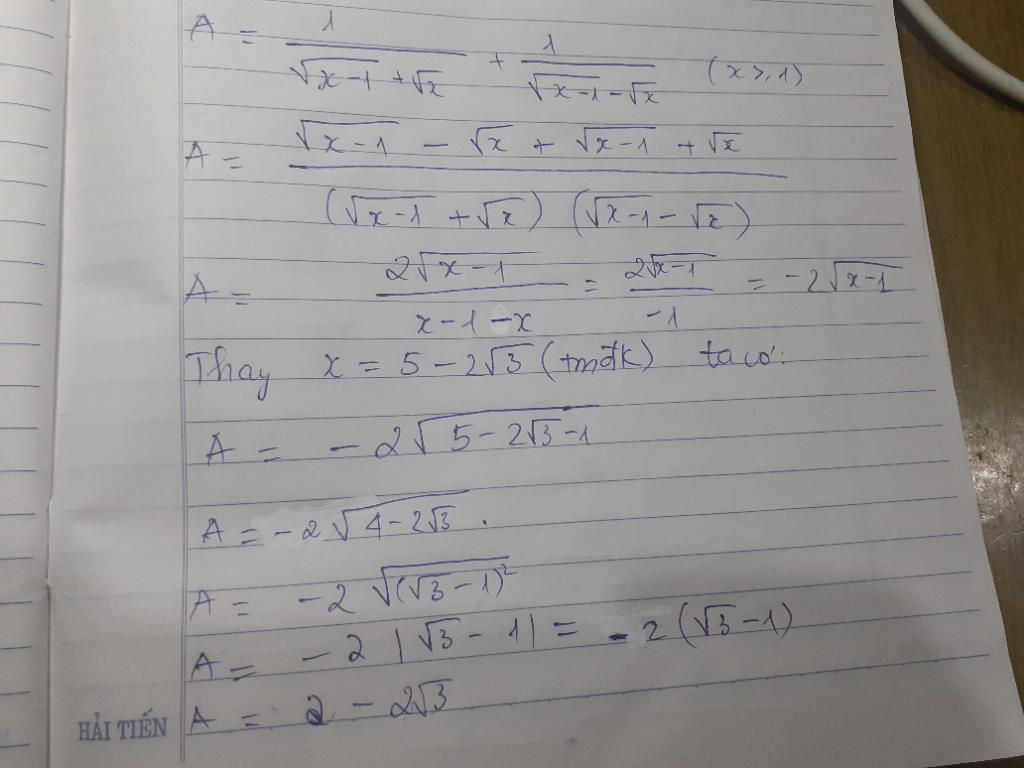 A = 1/(√(x-1) + √x) + 1/(√(x-1) - √x) (x ≥ 1)
A = (√(x-1) - √x + √(x-1) + √x)/((√(x-1) + √x) (√(x-1) - √x))
A = 2√(x-1)/(x-1-x) = 2√(x-1)/-1 = -2√(x-1)
Thay x = 5 - 2√3 (tmđk) ta có:
A = -2√(5-2√3-1)
A = -2√(4-2√3).
A = -2√((√3-1)²)
A = -2|√3-1| = -2(√3-1)
A = 2 - 2√3
HẢI TIẾN